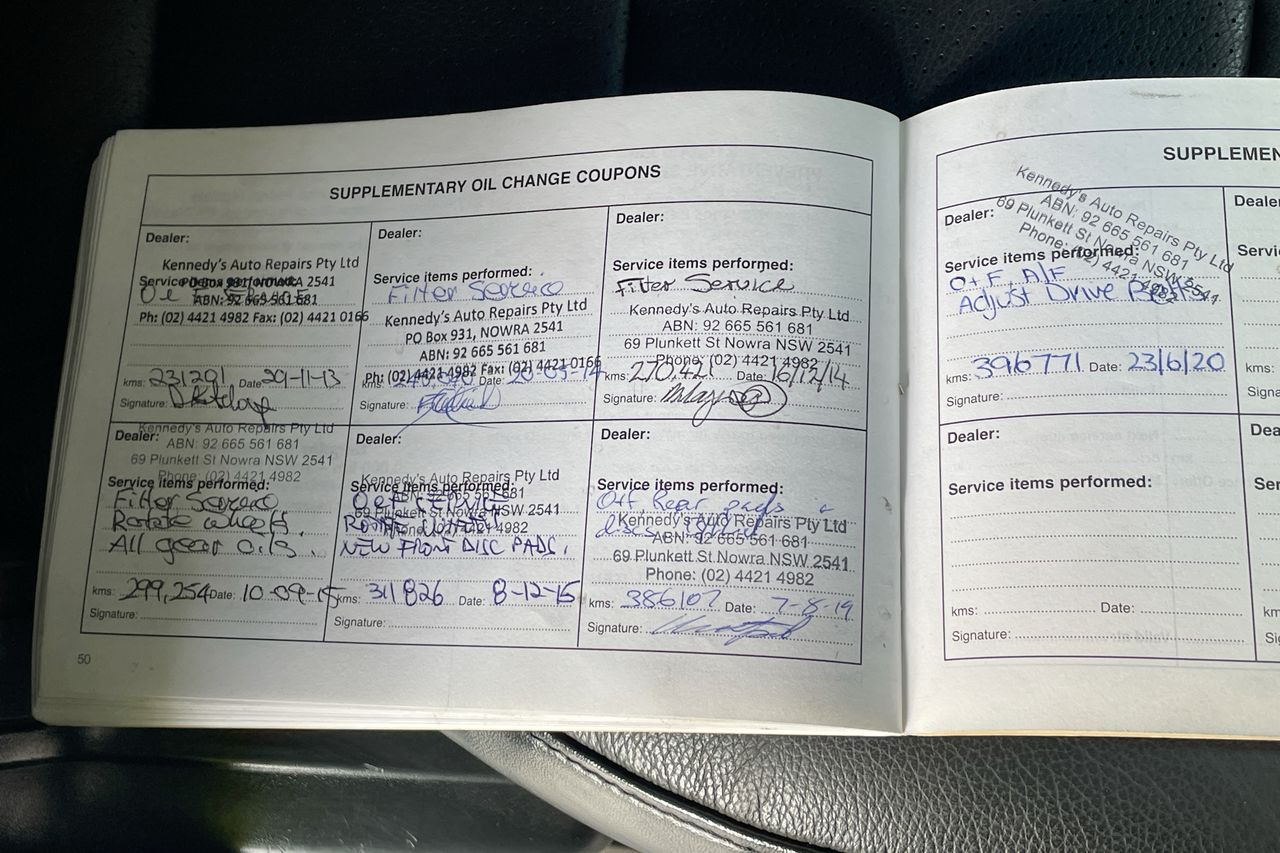 SUPPLEMENTARY OIL CHANGE COUPONS
Dealer:
Kennedy's Auto Repairs Pty Ltd
Service items performed:
PO Box 931, NOWRA 2541
ABN: 92 665 561 681
Ph: (02) 4421 4982 Fax: (02) 4421 0166
kms: 231291 Date: 29-11-13
Signature:
Dealer:
Service items performed:
Filter Service
Kennedy's Auto Repairs Pty Ltd
PO Box 931, NOWRA 2541
ABN: 92 665 561 681
Ph: (02) 4421 4982 Fax: (02) 4421 0166
kms: Date: 20-05-14
Signature:
Dealer:
Service items performed:
Filter Service
Kennedy's Auto Repairs Pty Ltd
ABN: 92 665 561 681
69 Plunkett St Nowra NSW 2541
Phone: (02) 4421 4982
kms: 270,421 Date: 16/12/14
Signature:
Kennedy's Auto Repairs Pty Ltd
Dealer:
ABN: 92 665 561 681
69 Plunkett St Nowra NSW 2541
Phone: (02) 4421 4982
Service items performed:
Filter Service
Rotate wheels.
All gear oils.
kms: 299,254 Date: 10-09-15
Signature:
Dealer:
Kennedy's Auto Repairs Pty Ltd
Service items performed:
ABN: 92 665 561 681
69 Plunkett St Nowra NSW 2541
Phone: (02) 4421 4982
NEW FRONT DISC PADS.
kms: 311826 Date: 8-12-15
Signature:
Dealer:
Service items performed:
Rear pads
discs
Kennedy's Auto Repairs Pty Ltd
ABN: 92 665 561 681
69 Plunkett St Nowra NSW 2541
Phone: (02) 4421 4982
kms: 386107 Date: 7-8-19
Signature:
50
SUPPLEMEN
Kennedy's Auto Repairs Pty Ltd
ABN: 92 665 561 681
69 Plunkett St Nowra NSW 2541
Phone: (02) 4421 4982
Dealer:
Service items performed:
O+F A/F
Adjust Drive Belts
kms: 396771 Date: 23/6/20
Signature:
Dealer:
Service items performed:
kms: Date:
Signature:
Dealer
Servic
kms:
Sig
Dea
Ser
kms
Sig